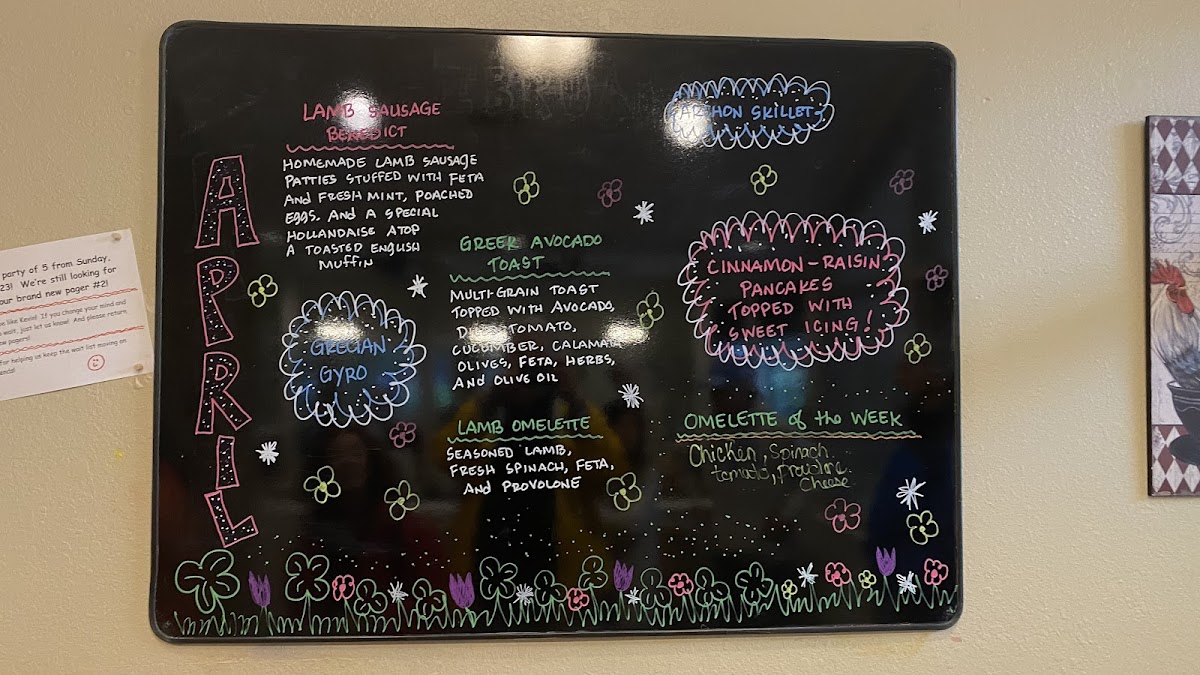 APRIL
LAMB SAUSAGE
BENEDICT
HOMEMADE LAMB SAUSAGE
PATTIES STUFFED WITH FETA
AND FRESH MINT, POACHED
EGGS, AND A SPECIAL
HOLLANDAISE ATOP
A TOASTED ENGLISH
MUFFIN
GRECIAN
GYRO
GREEK AVOCADO
TOAST
MULTI-GRAIN TOAST
TOPPED WITH AVOCADO,
TOMATO,
CUCUMBER, CALAMATA
OLIVES, FETA, HERBS,
AND OLIVE OIL
LAMB OMELETTE
SEASONED LAMB,
FRESH SPINACH, FETA,
AND PROVOLONE
SKILLET
CINNAMON-RAISIN
PANCAKES
TOPPED WITH
SWEET ICING!
OMELETTE of the WEEK
Chicken, Spinach
tomato,
Cheese
party of 5 from Sunday,
23! We're still looking for
our brand new pager #2!
like Kevin! If you change your mind and
wait, just let us know! And please return
pagers!
for helping us keep the wait list moving on